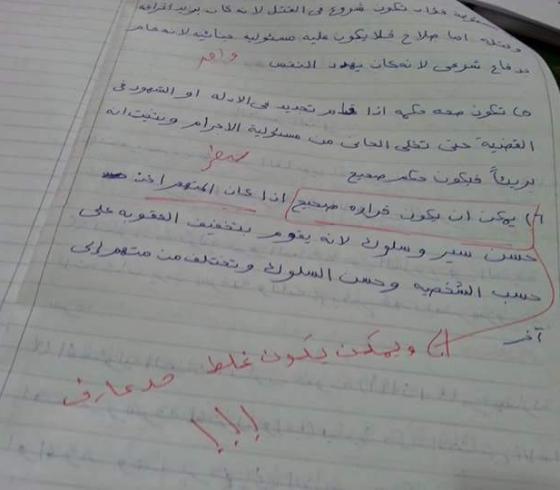 فكان تكون شروع في القتل لانه كان يريد
وقتله اما صلاح فلا يكون عليه مسئولية جنائية لانه قام
بدفاع شرعي لانه كان يهدد النفس
٥) تكون صحه حكمه اذا قام تحديد في الادله او الشهود في
القضية حتى تخلى الجاني من مسئولية الاجرام ويثبت انه
بريئاً فيكون حكم صحيح
صفر
٦) يمكن ان يكون قراره صحيح اذا كان المتهم
حسن سير وسلوك لانه يقوم بتخفيف العقوبه على
حسب الشخصيه وحسن السلوك وتختلف من متهم الى
آخر
ويمكن يكون غلط محدش عارف
!!!